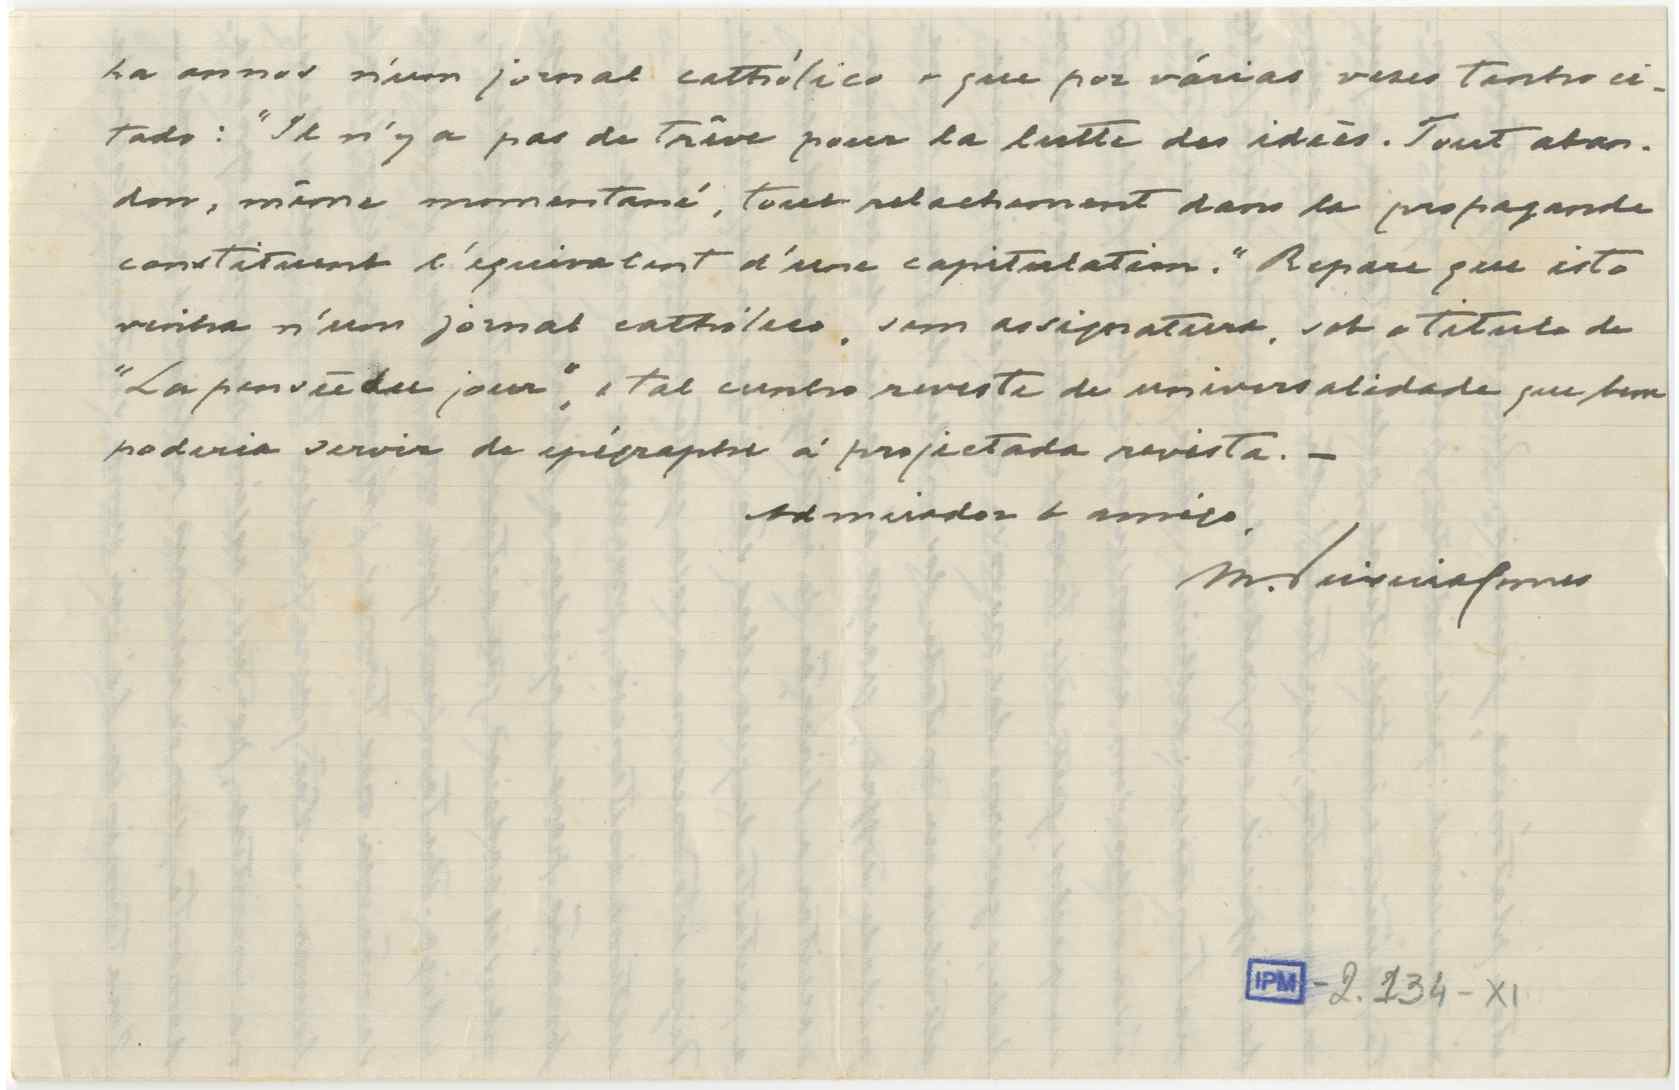 ha annos n'um jornal cathólico e que por várias vezes tenho ci-
tado: "Il n'y a pas de trêve pour la lutte des idées. Tout aban-
don, même momentané, tout relachement dans la propagande
constituent l'équivalent d'une capitulation." Repare que isto
vinha n'um jornal cathólico, sem assignatura, sob o titulo de
"La pensée du jour", e tal cunho reveste de universalidade que bem
poderia servir de epígraphe á projectada revista. —
Admirador e amigo,
M. Teixeira Gomes
IPM - 2.134 - XI